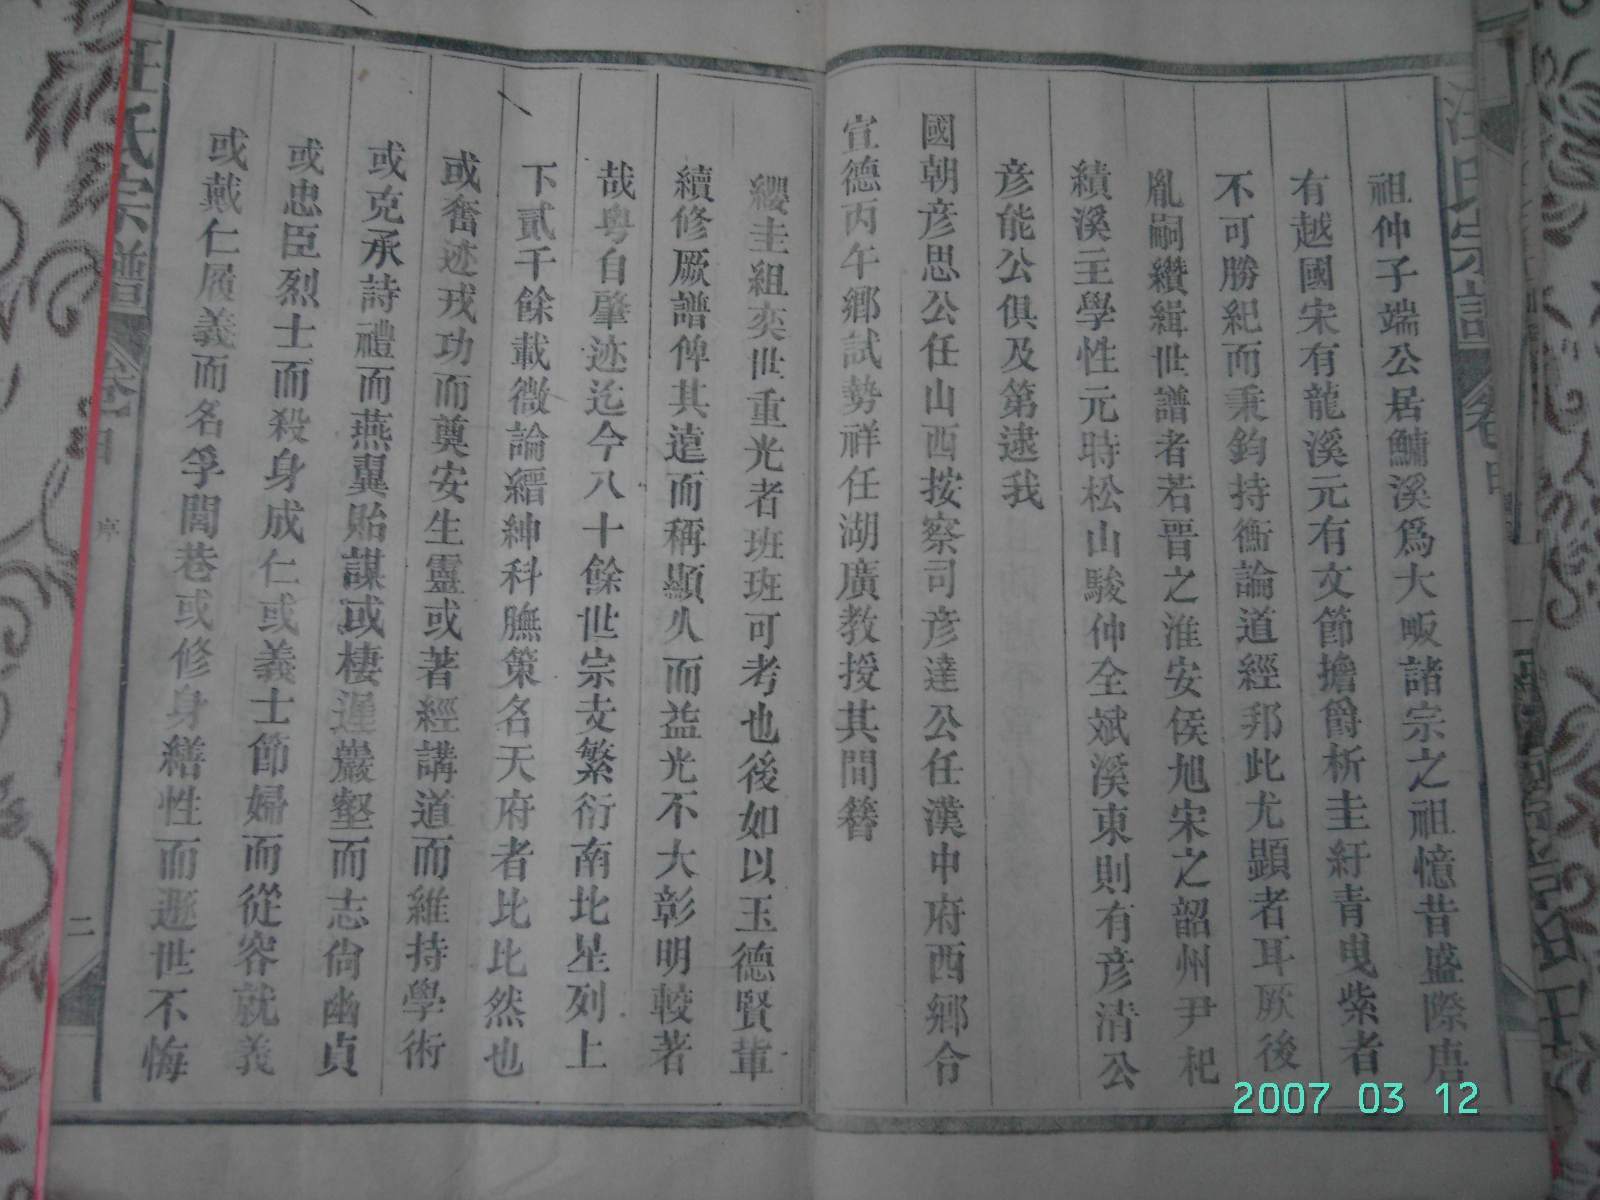 祖仲子端公居鱅溪爲大畈諸宗之祖憶昔盛際唐
有越國宋有龍溪元有文節擔爵析圭紆青曳紫者
不可勝紀而秉鈞持衡論道經邦此尤顯者耳厥後
胤嗣纘緝世譜者若晋之淮安侯旭宋之韶州尹杞
績溪主學性元時松山駿仲全斌溪東則有彦清公
彦能公俱及第逮我
國朝彦思公任山西按察司彦達公任漢中府西鄉令
宣德丙午鄉試勢祥任湖廣教授其間簪
纓圭組奕世重光者班班可考也後如以玉德賢輩
續修厥譜俾其遠而稱顯久而益光不大彰明較著
哉粤自肇迹迄今八十餘世宗支繁衍南北星列上
下貳千餘載微論縉紳科膴策名天府者比比然也
或奮迹戎功而奠安生靈或著經講道而維持學術
或克承詩禮而燕翼貽謀或棲遲巖壑而志尙幽貞
或忠臣烈士而殺身成仁或義士節婦而從容就義
或戴仁履義而名孚閭巷或修身繕性而遯世不悔
汪氏宗譜
卷首
序
二
汪氏宗譜
2007 03 12